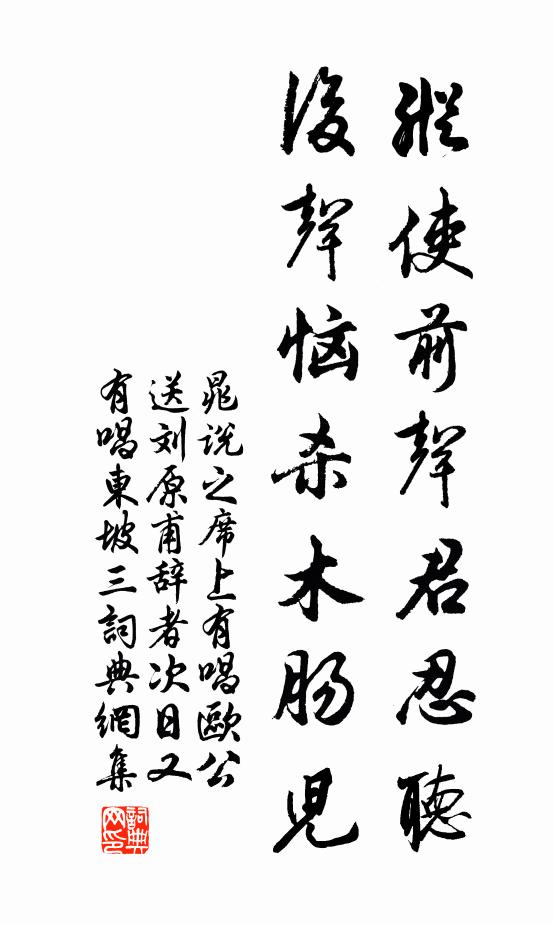 縱使前聲君忍聽
後聲惱杀木肠兒
晁说之席上有唱歐公
送刘原甫辞者次日又
有唱東坡三詞典網集
詞典
网印